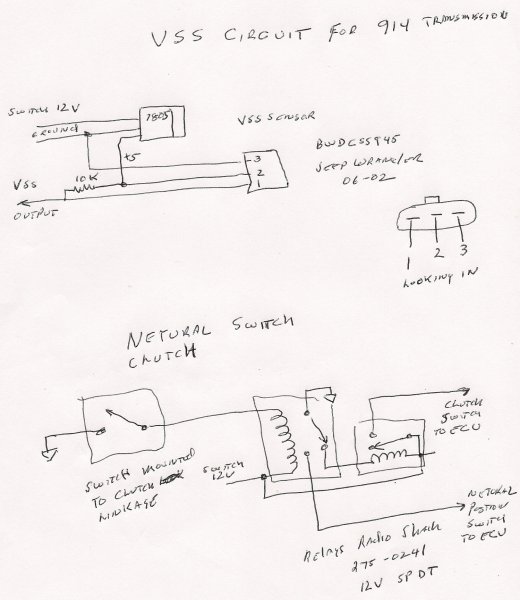 VSS CIRCUIT FOR 914 TRANSMISSION
SWITCH 12V
GROUND
7805
VSS SENSOR
+5
10K
VSS
OUTPUT
3
2
1
BWDCSS945
JEEP WRANGLER
06-02
1 2 3
LOOKING IN
NETURAL SWITCH
CLUTCH
SWITCH MOUNTED
TO CLUTCH
LINKAGE
SWITCH
12V
CLUTCH
SWITCH
TO ECU
NETURAL
POSITION
SWITCH
TO ECU
RELAYS RADIO SHACK
275-0241
12V SPDT